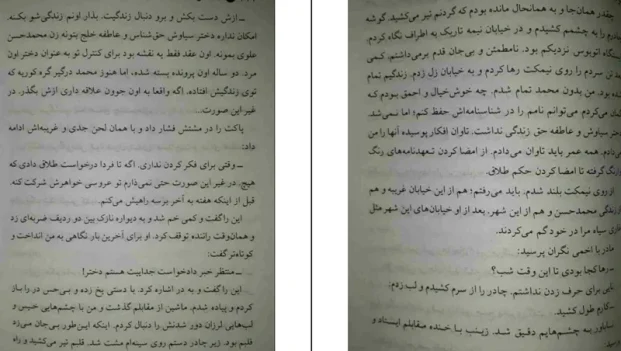 ـ ازش دست بکش و برو دنبال زندگیت. بذار اونم زندگی‌شو بکنه.
امکان نداره دختر سیاوش حق‌شناس و عاطفه خلج بتونه زن محمدحسن
علوی بمونه. اون عقد فقط یه نقشه بود برای کنترل تو به عنوان دختر اون
مرد. دو ساله اون پرونده بسته شده، اما هنوز محمد درگیر گره کوریه که
توی زندگیش افتاده. اگه واقعا به اون جوون علاقه داری ازش بگذر. در
غیر این صورت...
پاکت را در مشتش فشار داد و با همان لحن جدی و غریبه‌اش ادامه
داد:
ـ وقتی برای فکر کردن نداری. اگه تا فردا درخواست طلاق دادی که
هیچ، در غیر این صورت حتی نمی‌ذارم تو عروسی خواهرش شرکت کنه.
قبل از اینکه هفته به آخر برسه راهیش می‌کنم.
این را گفت و کمی خم شد و به دیواره نازک بین دو ردیف ضربه‌ای زد
و همان‌وقت راننده توقف کرد. او برای آخرین بار نگاهی به من انداخت و
کوتاه‌تر گفت:
ـ منتظر خبر دادخواست جداییت هستم دختر!
این را گفت و به در اشاره کرد. با دستی یخ زده و بی‌حس در را باز
کردم و پیاده شدم. ماشین از مقابلم گذشت و من با چشم‌هایی خیس و
لب‌هایی لرزان دور شدنش را دنبال کردم. اینکه این‌طور بی‌جان می‌زد
قلبم بود. زیر چادر دستم روی سینه‌ام مشت شد. قلبم تیر می‌کشید و راه
چقدر همان‌جا و به همانحال مانده بودم که گردنم تیر می‌کشید. گوشه
چادرم را به چشمم کشیدم و در خیابان نیمه تاریک به اطراف نگاه کردم.
ایستگاه اتوبوس نزدیکم بود. نامطمئن و بی‌جان قدم برمی‌داشتم. کمی
سردم را روی نیمکت رها کردم و به خیابان زل زدم. زندگیم تمام
شده بود. من بدون محمد تمام شدم. چه خوش‌خیال و احمق بودم که
می‌کردم می‌توانم نامم را در شناسنامه‌اش حفظ کنم؛ اما نمی‌شد.
دختر سیاوش و عاطفه حق زندگی نداشت. تاوان افکار پوسیده آنها را من
می‌دادم. همه عمر باید تاوان می‌دادم. از امضا کردن تعهدنامه‌های رنگ
وارنگ گرفته تا امضا کردن حکم طلاق.
از روی نیمکت بلند شدم. باید می‌رفتم؛ هم از این خیابان غریبه و هم
از زندگی محمدحسن و هم از این شهر. بعد از او خیابان‌های این شهر مثل
سیاه مرا در خود گم می‌کردند.
مادر با اخمی نگران پرسید:
ـ رها کجا بودی تا این وقت شب؟
نایی برای حرف زدن نداشتم. چادر را از سرم کشیدم و لب زدم:
ـ کارم طول کشید.
به چشم‌هایم دقیق شد. زینب با خنده مقابلم ایستاد و